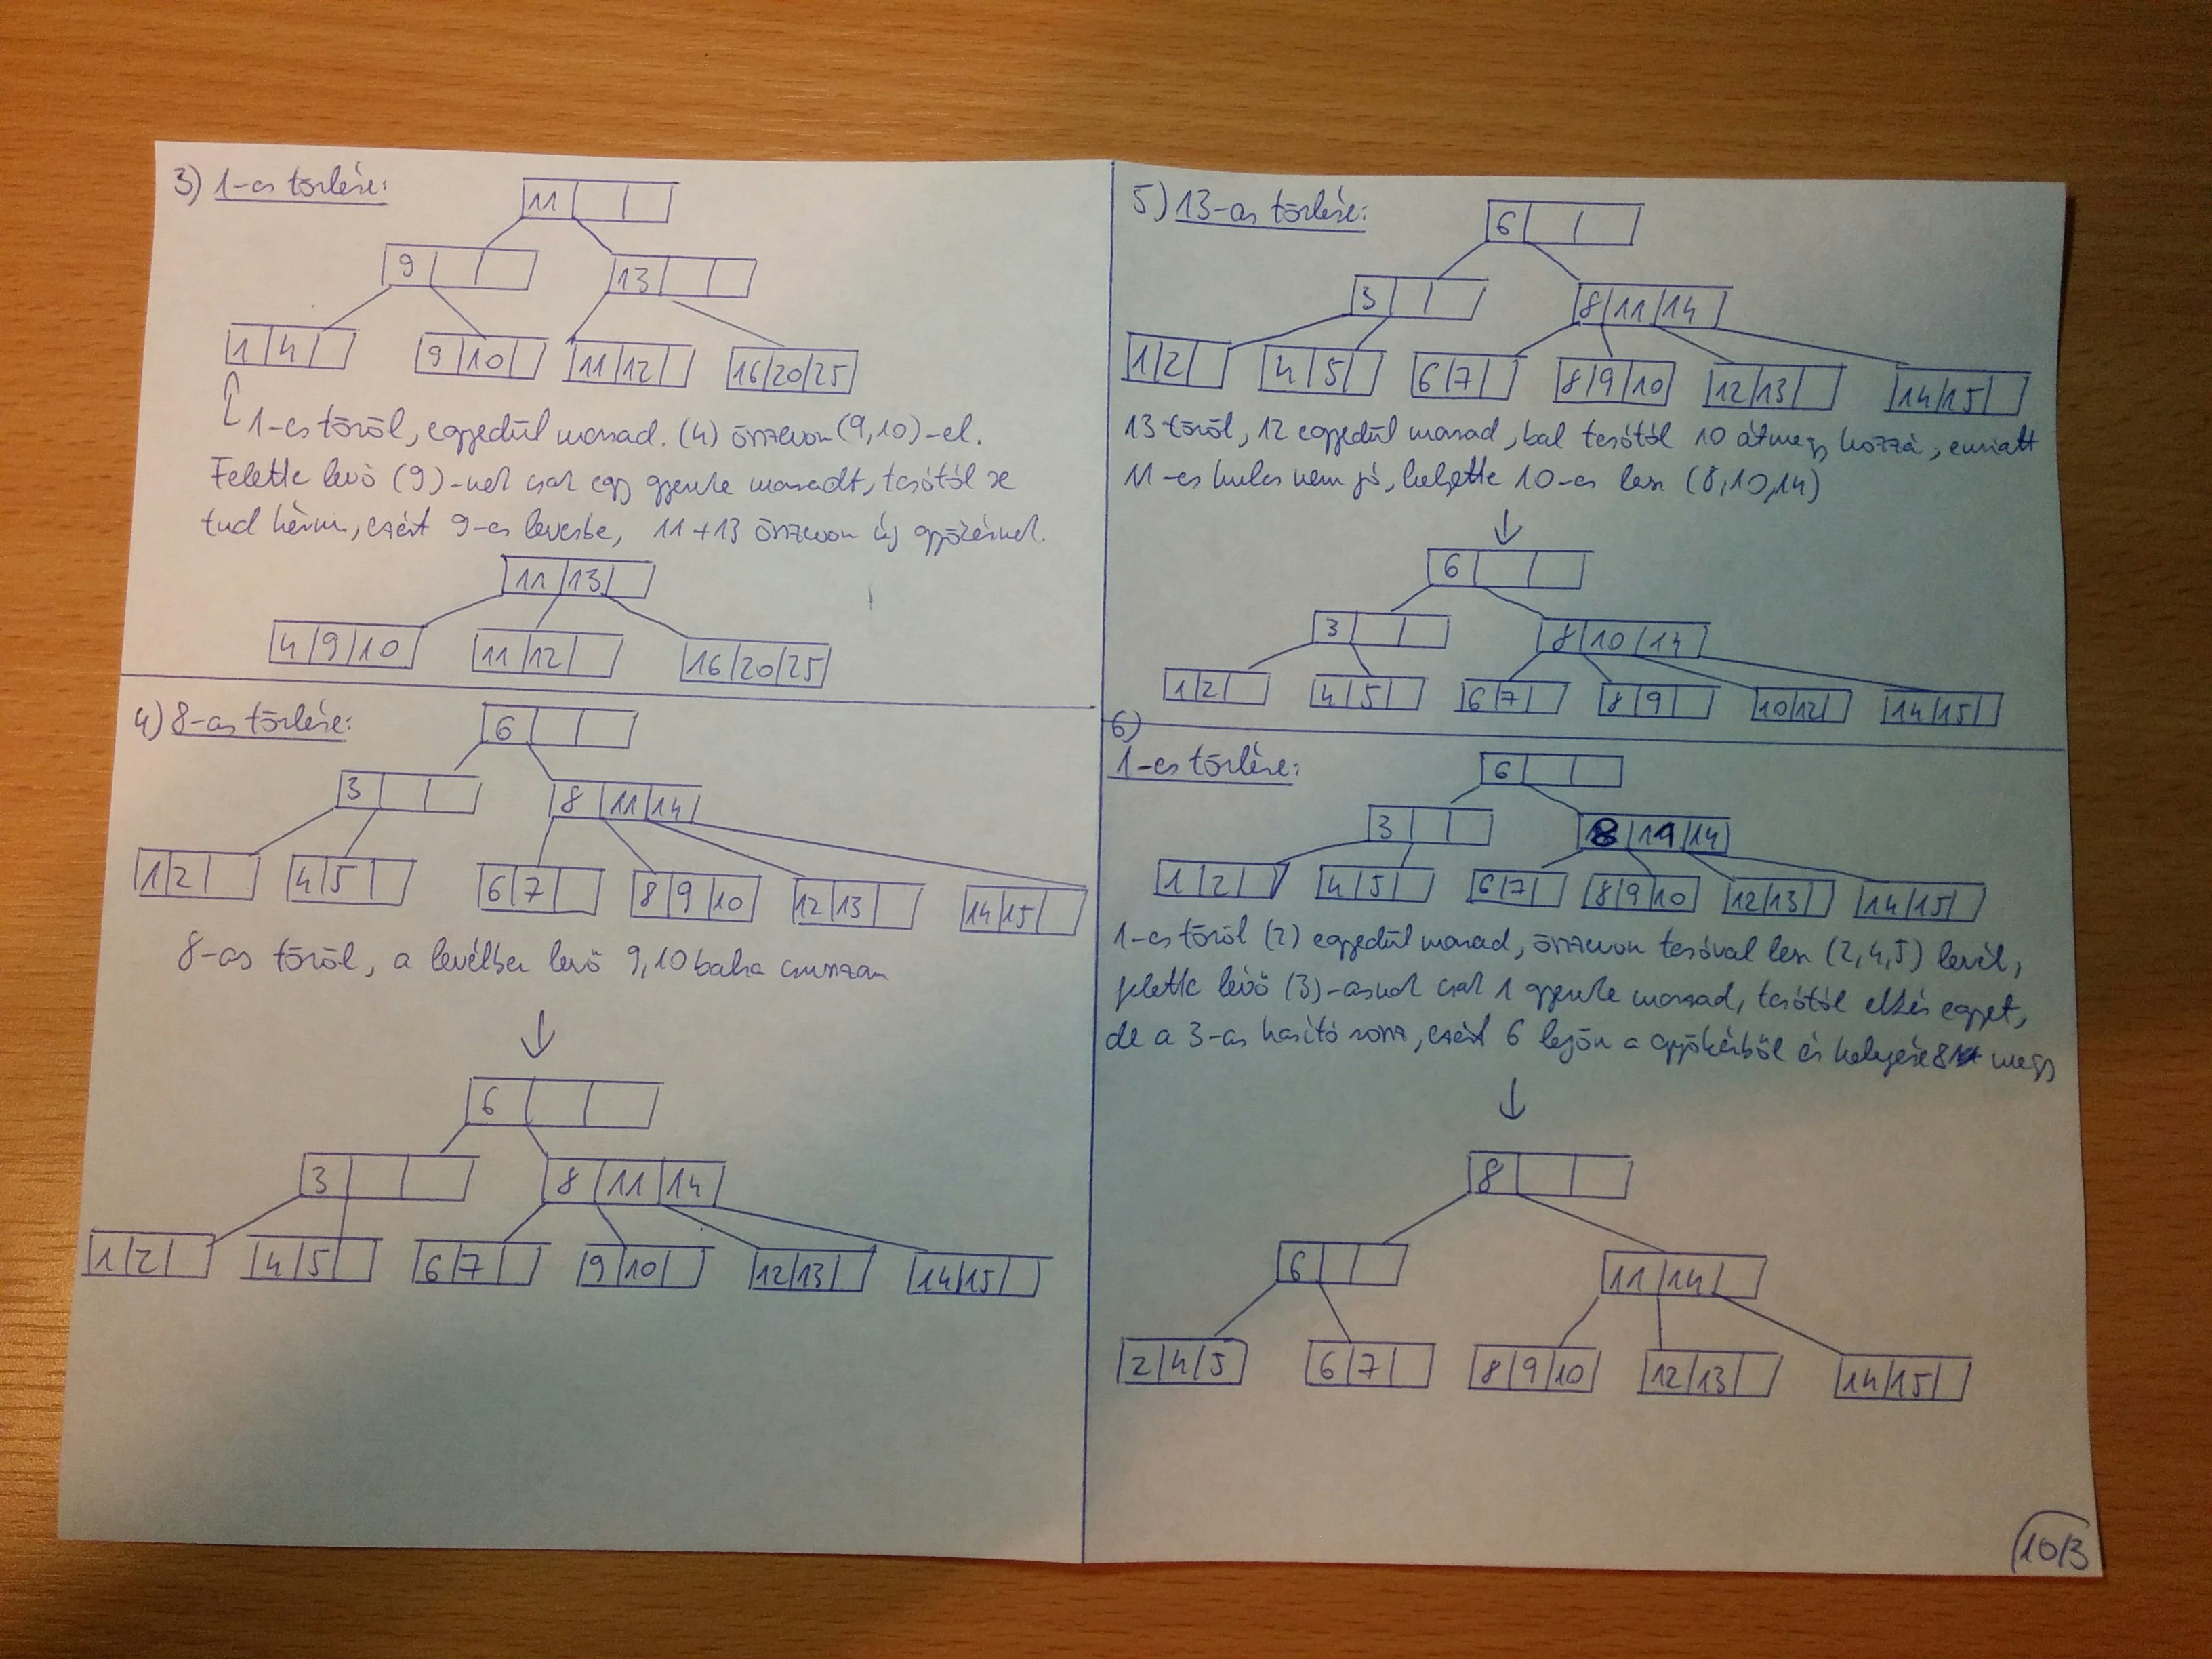 3) 1-es törlése:
11
9
13
1 4
9 10
11 12
16 20 25
1-es töröl, egyedül marad. (4) összevon (9,10)-el.
Felette levő (9)-nek csak egy gyereke maradt, tesótól se
tud kérni, ezért 9-es levesbe, 11+13 összevon új gyökérnek.
11 13
4 9 10
11 12
16 20 25
4) 8-as törlése:
6
3
8 11 14
1 2
4 5
6 7
8 9 10
12 13
14 15
8-as töröl, a levélben levő 9,10 balra csúszan
↓
6
3
8 11 14
1 2
4 5
6 7
9 10
12 13
14 15
5) 13-as törlése:
6
3
8 11 14
1 2
4 5
6 7
8 9 10
12 13
14 15
13 töröl, 12 egyedül marad, bal tesótól 10 átmegy hozzá, emiatt
11-es kulcs nem jó, helyette 10-es lesz (8,10,14)
↓
6
3
8 10 14
1 2
4 5
6 7
8 9
10 12
14 15
6)
1-es törlése:
6
3
8 11 14
1 2
4 5
6 7
8 9 10
12 13
14 15
1-es töröl (2) egyedül marad, összevon tesóval lesz (2,4,5) levél,
felette lévő (3)-asnak csak 1 gyereke marad, tesótól elkér egyet,
de a 3-as hasító rossz, ezért 6 lejön a gyökérből és helyére 8 megy
↓
8
6
11 14
2 4 5
6 7
8 9 10
12 13
14 15
10/3